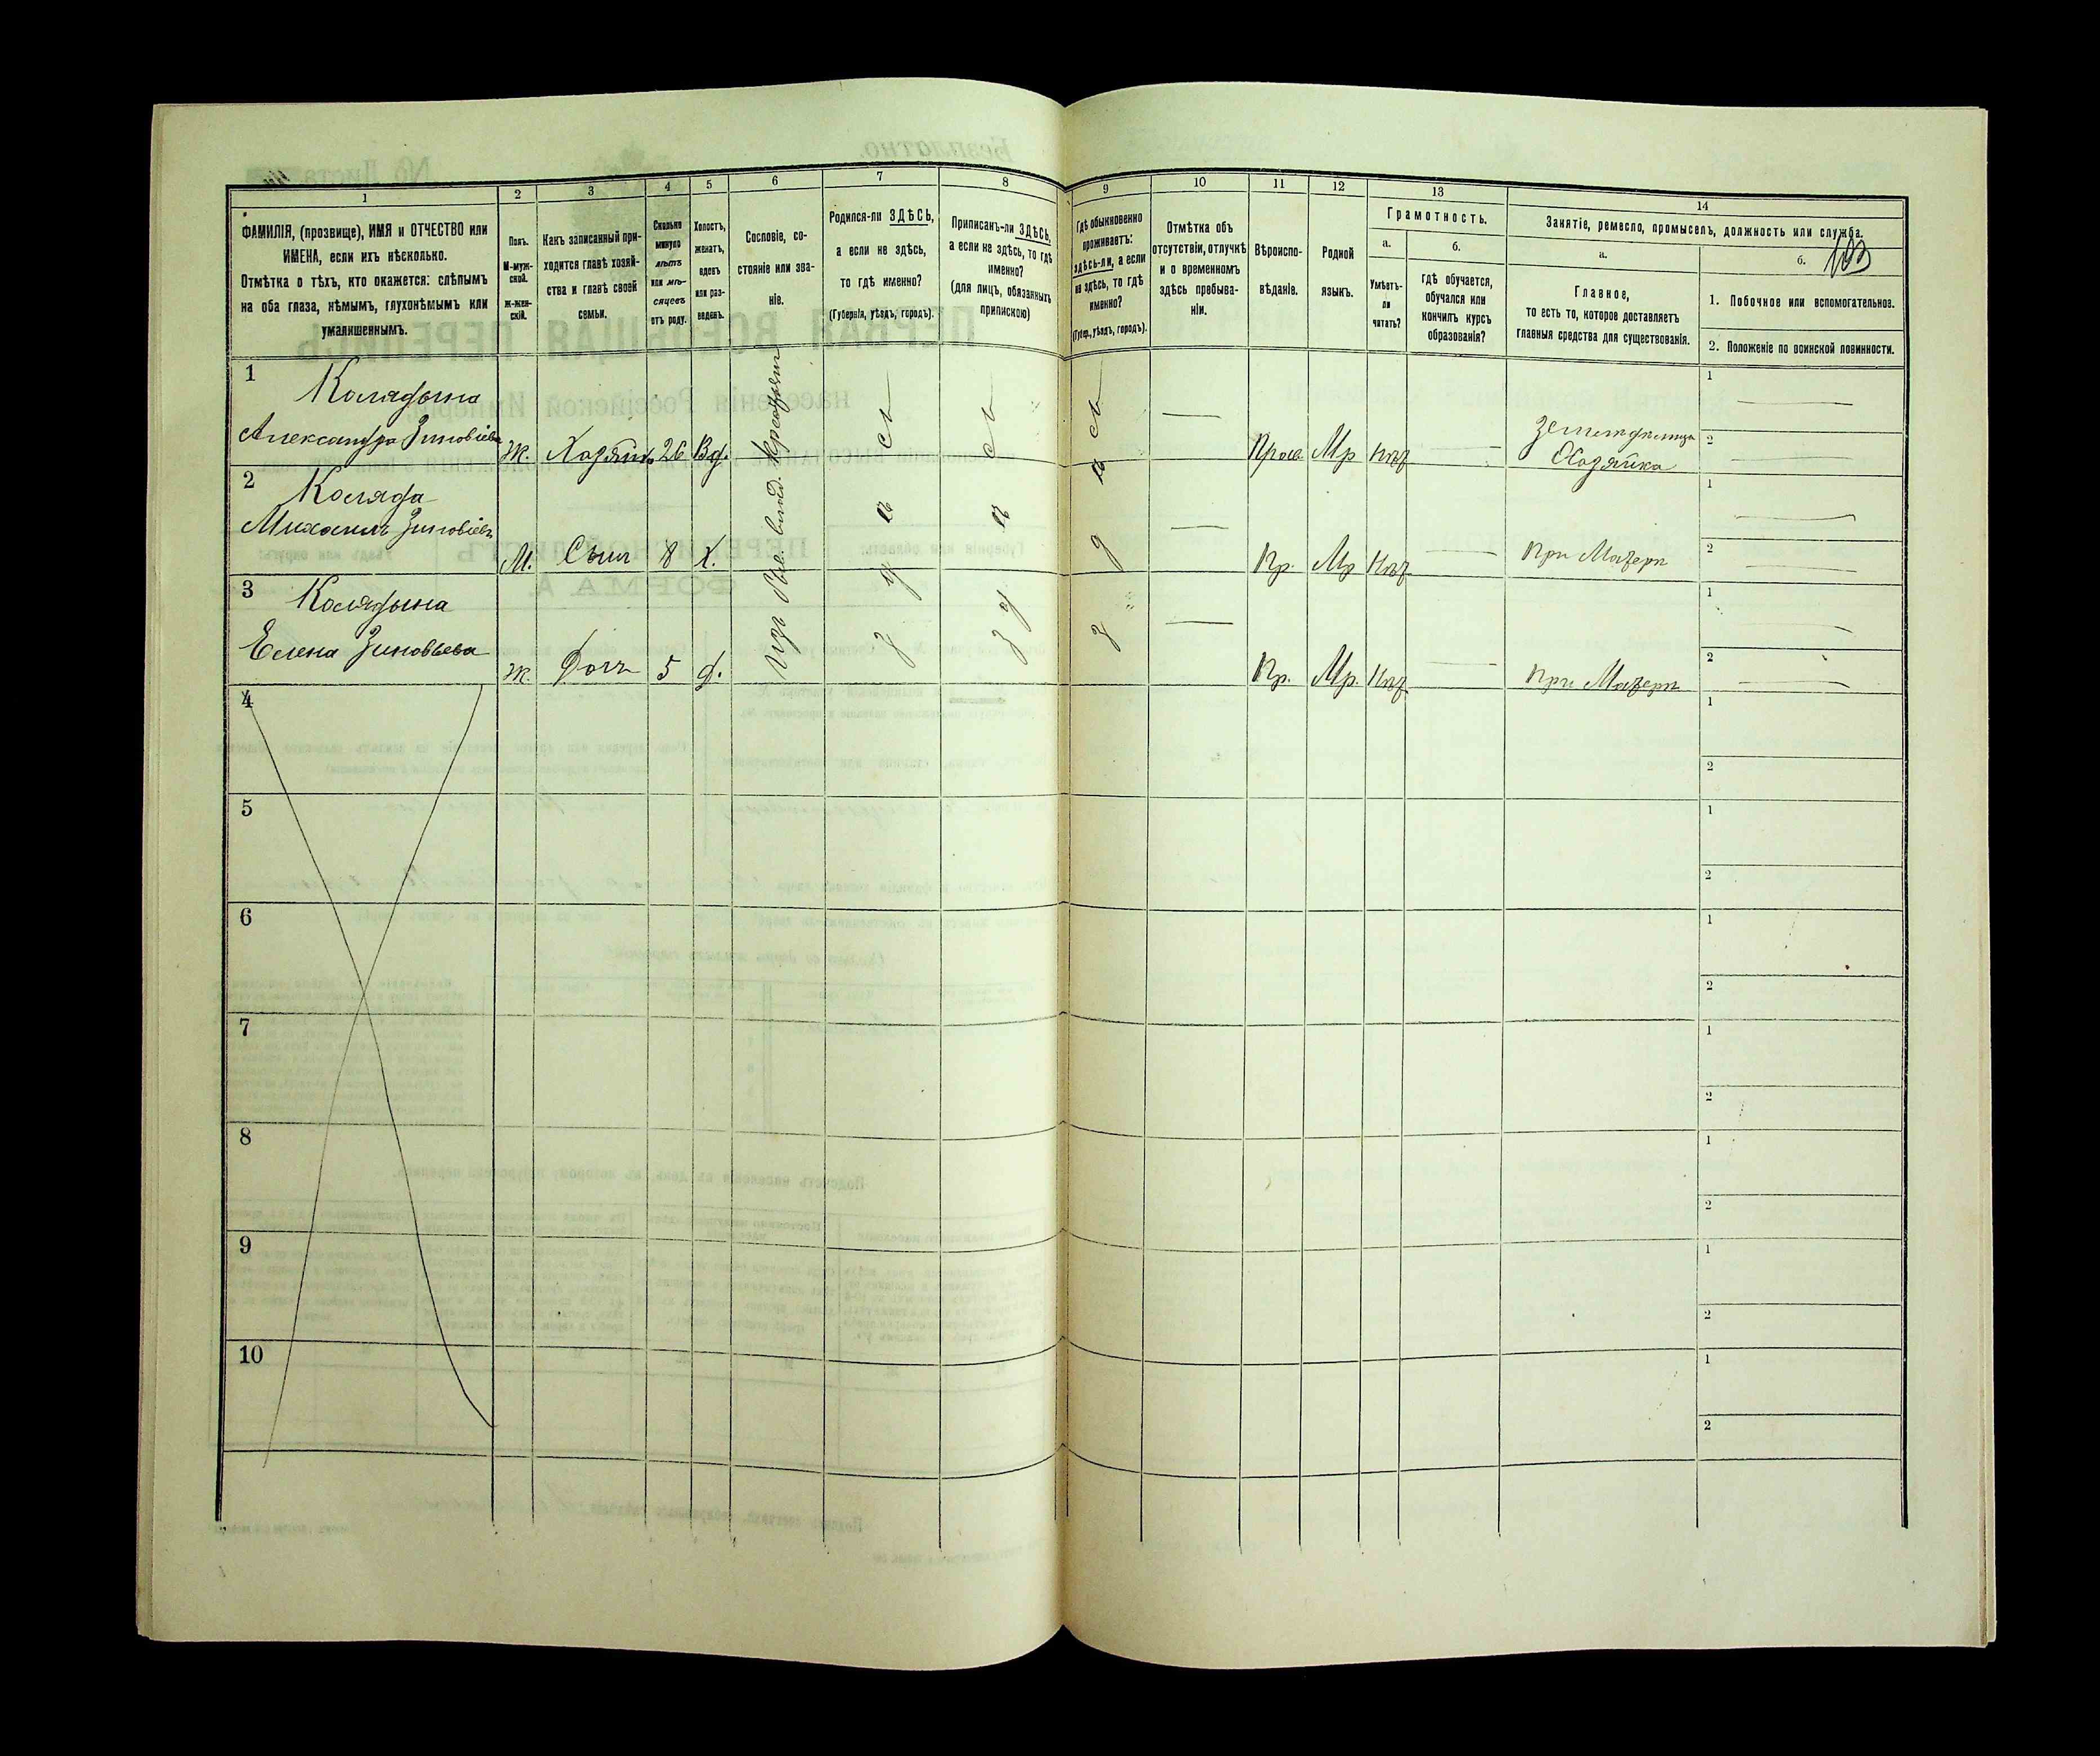 1
2
3
4
5
6
7
8
9
10
11
12
13
14
ФАМИЛІЯ, (прозвище), ИМЯ и ОТЧЕСТВО или
ИМЕНА, если ихъ нѣсколько.
Отмѣтка о тѣхъ, кто окажется: слѣпымъ
на оба глаза, нѣмымъ, глухонѣмымъ или
умалишеннымъ.
Полъ.
М-муж-
ской.
ж-жен-
скій.
Какъ записанный при-
ходится главѣ хозяй-
ства и главѣ своей
семьи.
Сколько
минуло
лѣтъ
или мѣ-
сяцевъ
отъ роду.
Холостъ,
женатъ,
вдовъ
или раз-
веденъ.
Сословіе, со-
стояніе или зва-
ніе.
Родился-ли ЗДѢСЬ,
а если не здѣсь,
то гдѣ именно?
(Губернія, уѣздъ, городъ).
Приписанъ-ли ЗДѢСЬ,
а если не здѣсь, то гдѣ
именно?
(для лицъ, обязанныхъ
припискою)
Гдѣ обыкновенно
проживаетъ:
здѣсь-ли, а если
не здѣсь, то гдѣ
именно?
(Губер., уѣздъ, городъ).
Отмѣтка объ
отсутствіи, отлучкѣ
и о временномъ
здѣсь пребыва-
ніи.
Вѣроиспо-
вѣданіе.
Родной
языкъ.
Грамотность.
а.
Умѣетъ-
ли
читать?
б.
Гдѣ обучается,
обучался или
кончилъ курсъ
образованія?
Занятіе, ремесло, промыселъ, должность или служба.
а.
Главное,
то есть то, которое доставляетъ
главныя средства для существованія.
б.
1. Побочное или вспомогательное.
2. Положеніе по воинской повинности.
1
Колядына
Александра Зиновіева
Ж. Хозяйка 26 Вд.
Прав. Мр нѣт
Земледѣлица
Хозяйка
1
2
2
Коляда
Михаилъ Зиновіевъ
М. Сынъ 8 Х.
Пр. Мр Нѣт
При Матери
1
2
3
Колядына
Елена Зиновьева
Ж. Дочь 5 д.
Пр. Мр. Нѣт
При Матери
1
2
здѣсь
здѣсь
здѣсь
4
1
2
5
1
2
6
1
2
7
1
2
8
1
2
9
1
2
10
1
2